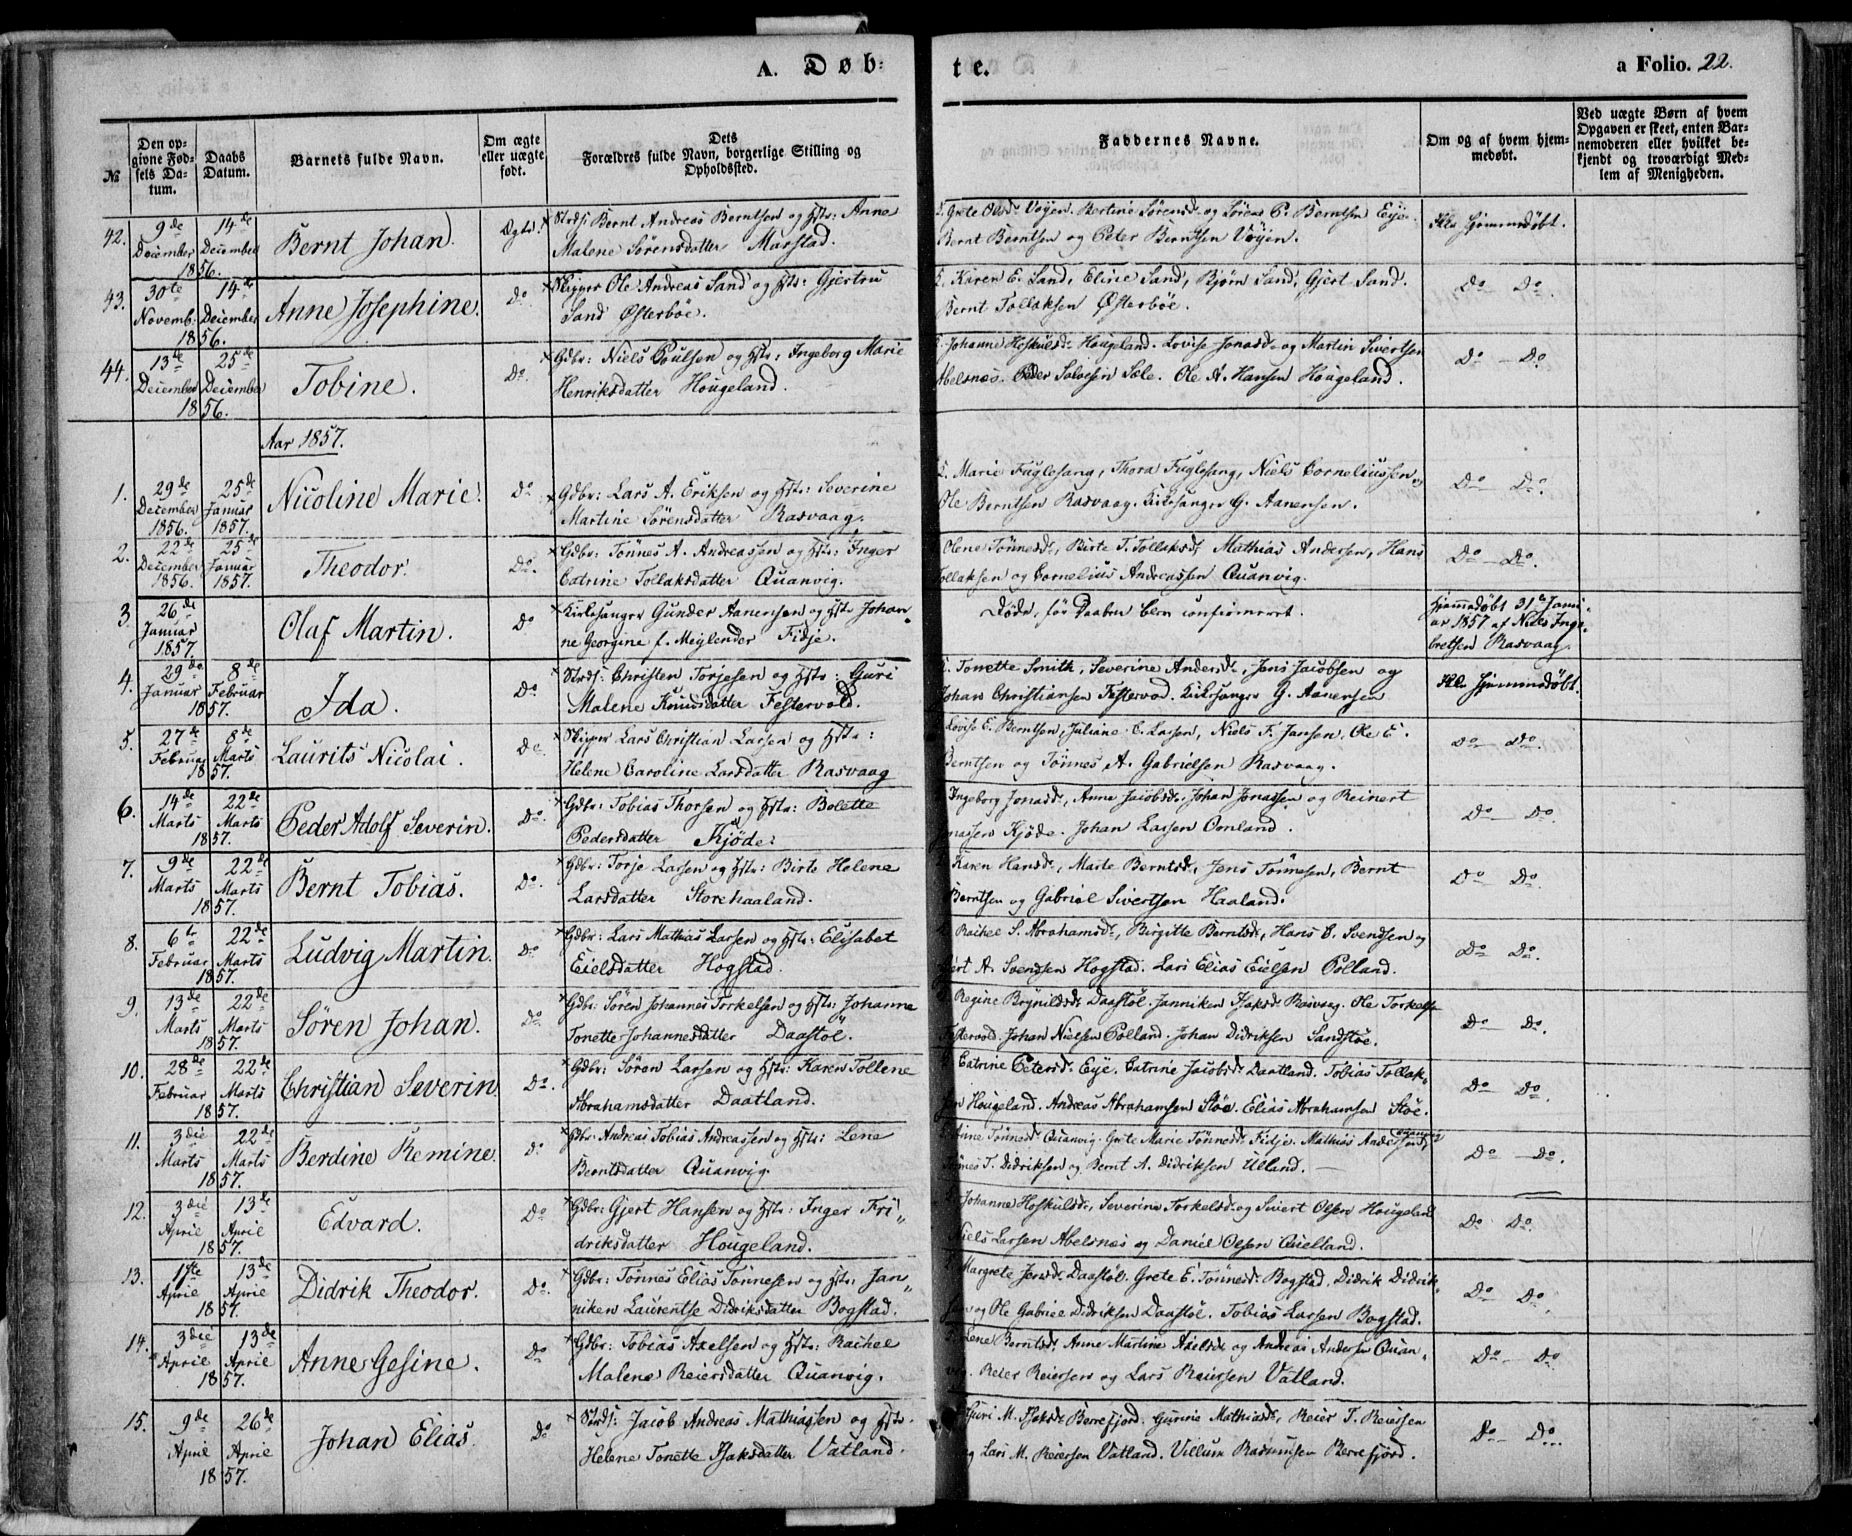 A. Døbte. a Folio. 22.
№
Den opgivne Fødsels Datum.
Daabs Datum.
Barnets fulde Navn.
Om ægte eller uægte født.
Dets Forældres fulde Navn, borgerlige Stilling og Opholdssted.
Faddernes Navne.
Om og af hvem hjemmedøbt.
Ved uægte Børn af hvem Opgaven er skeet, enten Barnemoderen eller hvilket bekjendt og troværdigt Medlem af Menigheden.
42. 9de December 14de December 1856. Bernt Johan. Ægte.
Strdsr: Bernt Andreas Berntsen og Hstr: Anne
Malene Sørensdatter Marstad.
Grete Olsd. Vøyen. Bertine Sørensd. og Sørens P. Berntsen Eye.
Bernt Berntsen og Peter Berntsen Vøyen.
Ikke hjemmedøbt.
43. 30te Novemb: 14de December 1856. Anne Josephine. Do
Skipper Ole Andreas Sand og Hstr: Gjertru
Sand Østerbøe.
Karen E. Sand, Elisie Sand, Bjørn Sand, Gjert Sand.
Bernt Tollaksen Østerbøe.
Do Do.
44. 13de December 25de December 1856. Tobine. Do.
Gdbr: Niels Poulsen og Hstr: Ingeborg Marie
Henriksdatter Hougeland.
Johanne Hoskulsd. Hougeland. Lovise Jonasd. og Martin Sivertsen
Abelsnæs. Peder Salvesen Sæle. Ole A. Hansen Hougeland.
Do - Do.
Aar 1857.
1. 29de December 1856. 25de Januar 1857. Nicoline Marie. Do
Gdbr: Lars A. Eriksen og Hstr: Severine
Martine Sørensdatter Rasvaag.
Marie Fuglesang, Thora Fuglesang, Niels Corneliussen og
Ole Berntsen Rasvaag. Kirkesanger G. Aanensen.
Do Do.
2. 22de December 1856. 25de Januar 1857. Theodor. Do.
Gdbr: Tönnes A. Andreassen og Hstr: Inger
Catrine Tollaksdatter Quanvig.
Olene Tönnesd., Birte T. Tollaksd. Mathias Andersen, Hans
Tollaksen og Cornelius Andreassen Quanvig.
Do - Do.
3. 26de Januar 1857. Olaf Martin. Do
Kirkesanger Gunder Aanensen og Hstr Johan„
ne Georgine f. Meylender Fidje.
Døde, før Daaben blev confirmeret.
Hjemmedøbt 31te Janu„
ar 1857 af Niels Inge„
bretsen Rasvaag.
4. 29de Januar 8de Februar 1857. Ida. Do.
Strdsr: Christen Torjesen og Hstr: Guri
Malene Knudsdatter Festervold.
Tonette Smith, Severine Andersd. Jens Jacobsen og
Johan Christiansen Festervod. Kirkesanger G. Aanensen
Ikke hjemmedøbt.
5. 27de Februar 8de Marts 1857. Laurits Nicolai. Do.
Skipper Lars Christian Larsen og Hstr:
Helene Caroline Larsdatter Rasvaag
Lovise E. Berntsen, Juliane C. Larsen, Niels F. Jansen, Ole E.
Berntsen og Tönnes A. Gabrielsen Rasvaag.
Do - Do.
6. 14de Marts 22de Marts 1857. Peder Adolf Severin. Do.
Gdbr: Tobias Thorsen og Hstr: Bolette
Pedersdatter Kjöde.
Ingeborg Jonasd., Anne Jacobsd. Johan Jonassen og Reinert
Jonassen Kjöde. Johan Larsen Omland.
Do - Do.
7. 9de Marts 22de Marts 1857. Bernt Tobias. Do.
Gdbr: Torje Larsen og Hstr: Birte Helene
Larsdatter Storehaaland.
Karen Hansd., Marte Berntsd., Jens Tönnesen, Bernt
Berntsen og Gabriel Sivertsen Haaland.
Do Do.
8. 6te Februar 22de Marts 1857. Ludvig Martin. Do
Gdbr: Lars Mathias Larsen og Hstr: Elisabet
Eielsdatter Hogstad.
Rachel S. Abrahamsd., Birgitte Berntsd., Hans C. Svendsen og
Gjert A. Svendsen Hogstad. Lars Elias Eielsen Polland.
Do Do.
9. 13de Marts 22de Marts 1857. Sören Johan. Do.
Gdbr: Sören Johannes Torkelsen og Hstr: Johanne
Tonette Johannesdatter Daastöl.
Regine Brynildsd. Daastöl. Janniken Isaksd. Rasvaag. Ole Torkelse
Festervod. Johan Nielsen Polland. Johan Didriksen Sandstöe.
Do - Do.
10. 28de Februar 22de Marts 1857. Christian Severin. Do.
Gdbr: Sören Larsen og Hstr: Karen Tollene
Abrahamsdatter Daatland.
Catrine Petersd. Eye. Catrine Jacobsd. Daatland. Tobias Tollak„
sen Hougeland. Andreas Abrahamsen Stöe. Elias Abrahamsen Stöe.
Do - Do.
11. 3die Marts 22de Marts 1857. Berdine Remine. Do
Gdbr: Andreas Tobias Andreassen og Hstr: Lene
Berntsdatter Quanvig.
Tönnesd. Quanvig. Grete Marie Tönnesd. Fidje. Mathias Andersen Quanvig,
Tönnes T. Didriksen og Bernt A. Didriksen Ulland.
Do - Do.
12. 3die April 13de April 1857. Edvard. Do
Gdbr: Gjert Hansen og Hstr: Inger Fri„
driksdatter Hougeland.
Johanne Hoskulsd., Severine Torkelsd. og Sivert Olsen Hougeland
Niels Larsen Abelsnæs og Daniel Olsen Quelland.
Do Do.
13. 1ste April 13de April 1857. Didrik Theodor. Do.
Gdbr: Tönnes Elias Tönnesen og Hstr: Jan„
niken Laurentse Didriksdatter Bogstad.
Margrete Jensd. Daastöl. Grete E. Tönnesd. Bogstad. Didrik Didrik„
sen og Ole Gabriel Didriksen Daastöl. Tobias Larsen Bogstad.
Do - Do.
14. 3die April 13de April 1857. Anne Gesine. Do
Gdbr: Tobias Axelsen og Hstr: Rachel
Malene Reiersdatter Quanvig.
Lene Berntsd. Anne Martine Axelsd. og Andreas Andersen Quan„
vig. Reier Reiersen og Lars Reiersen Vatland.
Do - Do.
15. 9de April 26de April 1857. Johan Elias. Do
Strdsr: Jacob Andreas Mathiassen og Hstr.
Helene Tonette Isaksdatter Vatland.
Guri M. Isaksd. Berrefjord. Gunnie Mathiasd., Reier T. Reiersen
og Lars M. Reiersen Vatland. Villum Rasmussen Berrefjord.
Do - Do.